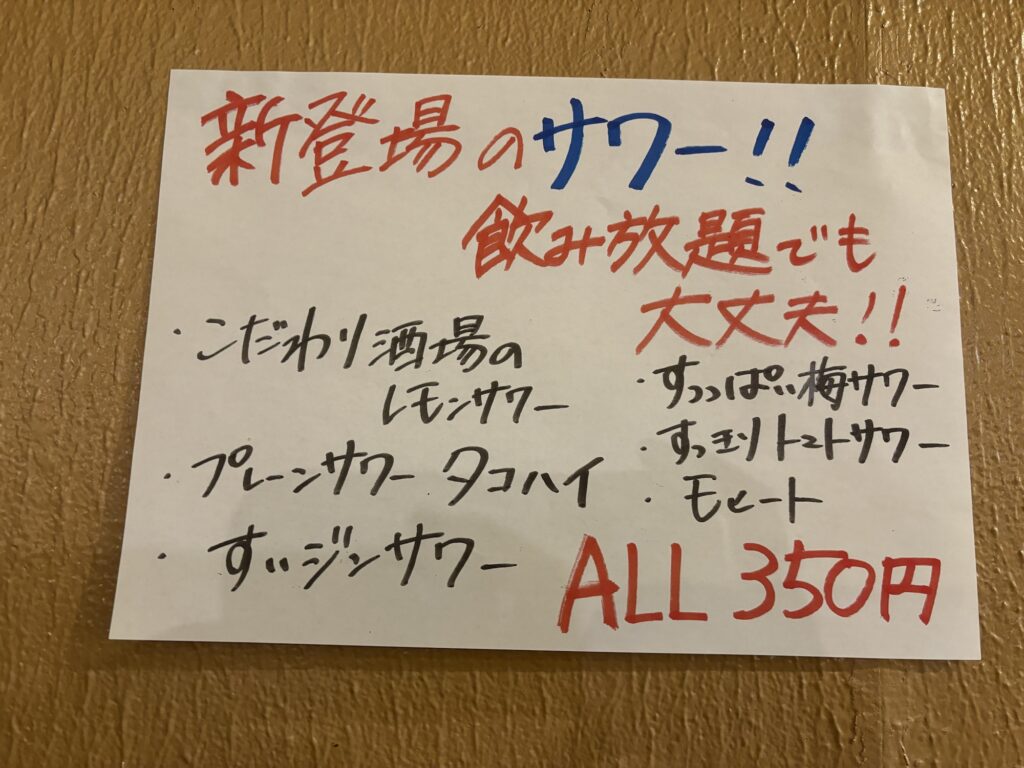 新登場のサワー!!
飲み放題でも
大丈夫!!
・こだわり酒場の
レモンサワー
・プレーンサワー タコハイ
・すいジンサワー
・すっぱい梅サワー
・すっきりトマトサワー
・モヒート
ALL 350円